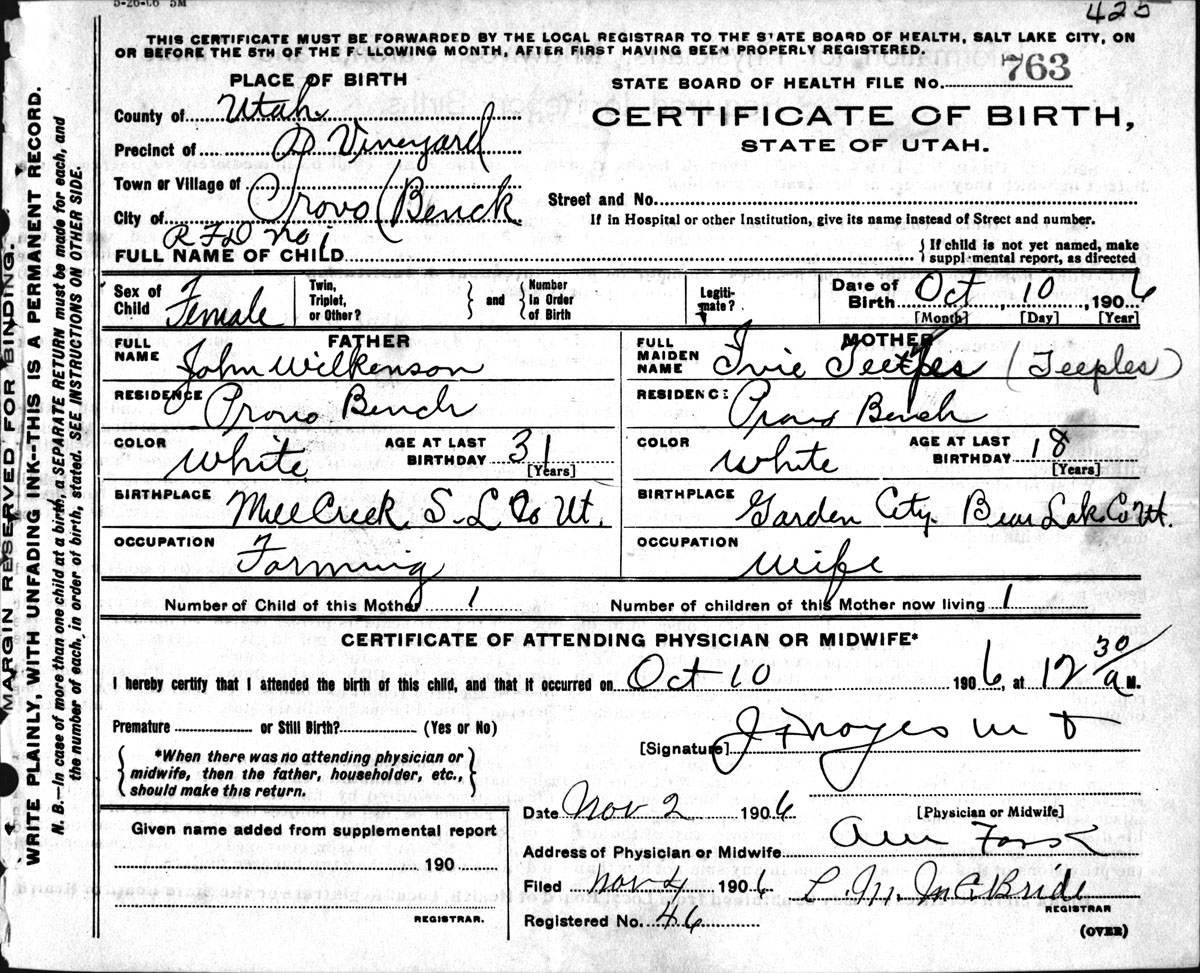 5-26-06 5M
425
THIS CERTIFICATE MUST BE FORWARDED BY THE LOCAL REGISTRAR TO THE STATE BOARD OF HEALTH, SALT LAKE CITY, ON
OR BEFORE THE 5TH OF THE FOLLOWING MONTH, AFTER FIRST HAVING BEEN PROPERLY REGISTERED.
PLACE OF BIRTH
STATE BOARD OF HEALTH FILE No. 763
County of Utah
CERTIFICATE OF BIRTH,
Precinct of Vineyard
STATE OF UTAH.
Town or Village of Provo Bench
Street and No.
City of
If in Hospital or other Institution, give its name instead of Street and number.
RFD No 1
FULL NAME OF CHILD
{ If child is not yet named, make
supplemental report, as directed
Sex of Child Female
Twin, Triplet, or Other? } and { Number in Order of Birth
Legitimate?
Date of Birth Oct 10, 1906
[Month] [Day] [Year]
FATHER
MOTHER
FULL NAME John Wilkenson
FULL MAIDEN NAME Ivie Teeples (Teeples)
RESIDENCE Provo Bench
RESIDENCE Provo Bench
COLOR White
AGE AT LAST BIRTHDAY 31 [Years]
COLOR White
AGE AT LAST BIRTHDAY 18 [Years]
BIRTHPLACE Mill Creek S. L Co Ut.
BIRTHPLACE Garden City Bear Lake Co Ut.
OCCUPATION Farming
OCCUPATION Wife
Number of Child of this Mother 1
Number of children of this Mother now living 1
CERTIFICATE OF ATTENDING PHYSICIAN OR MIDWIFE*
I hereby certify that I attended the birth of this child, and that it occurred on Oct 10 1906, at 12 30/a M.
Premature or Still Birth? (Yes or No)
[Signature] J F Noyes M D
{ *When there was no attending physician or
midwife, then the father, householder, etc.,
should make this return. }
Date Nov 2 1906
[Physician or Midwife]
Given name added from supplemental report
Address of Physician or Midwife Am Fork
190
Filed Nov 4 1906 L. M. McBride
REGISTRAR
REGISTRAR.
Registered No. 46
(OVER)
MARGIN RESERVED FOR BINDING.
WRITE PLAINLY, WITH UNFADING INK--THIS IS A PERMANENT RECORD.
N. B.—In case of more than one child at a birth, a SEPARATE RETURN must be made for each, and
the number of each, in order of birth, stated. SEE INSTRUCTIONS ON OTHER SIDE.